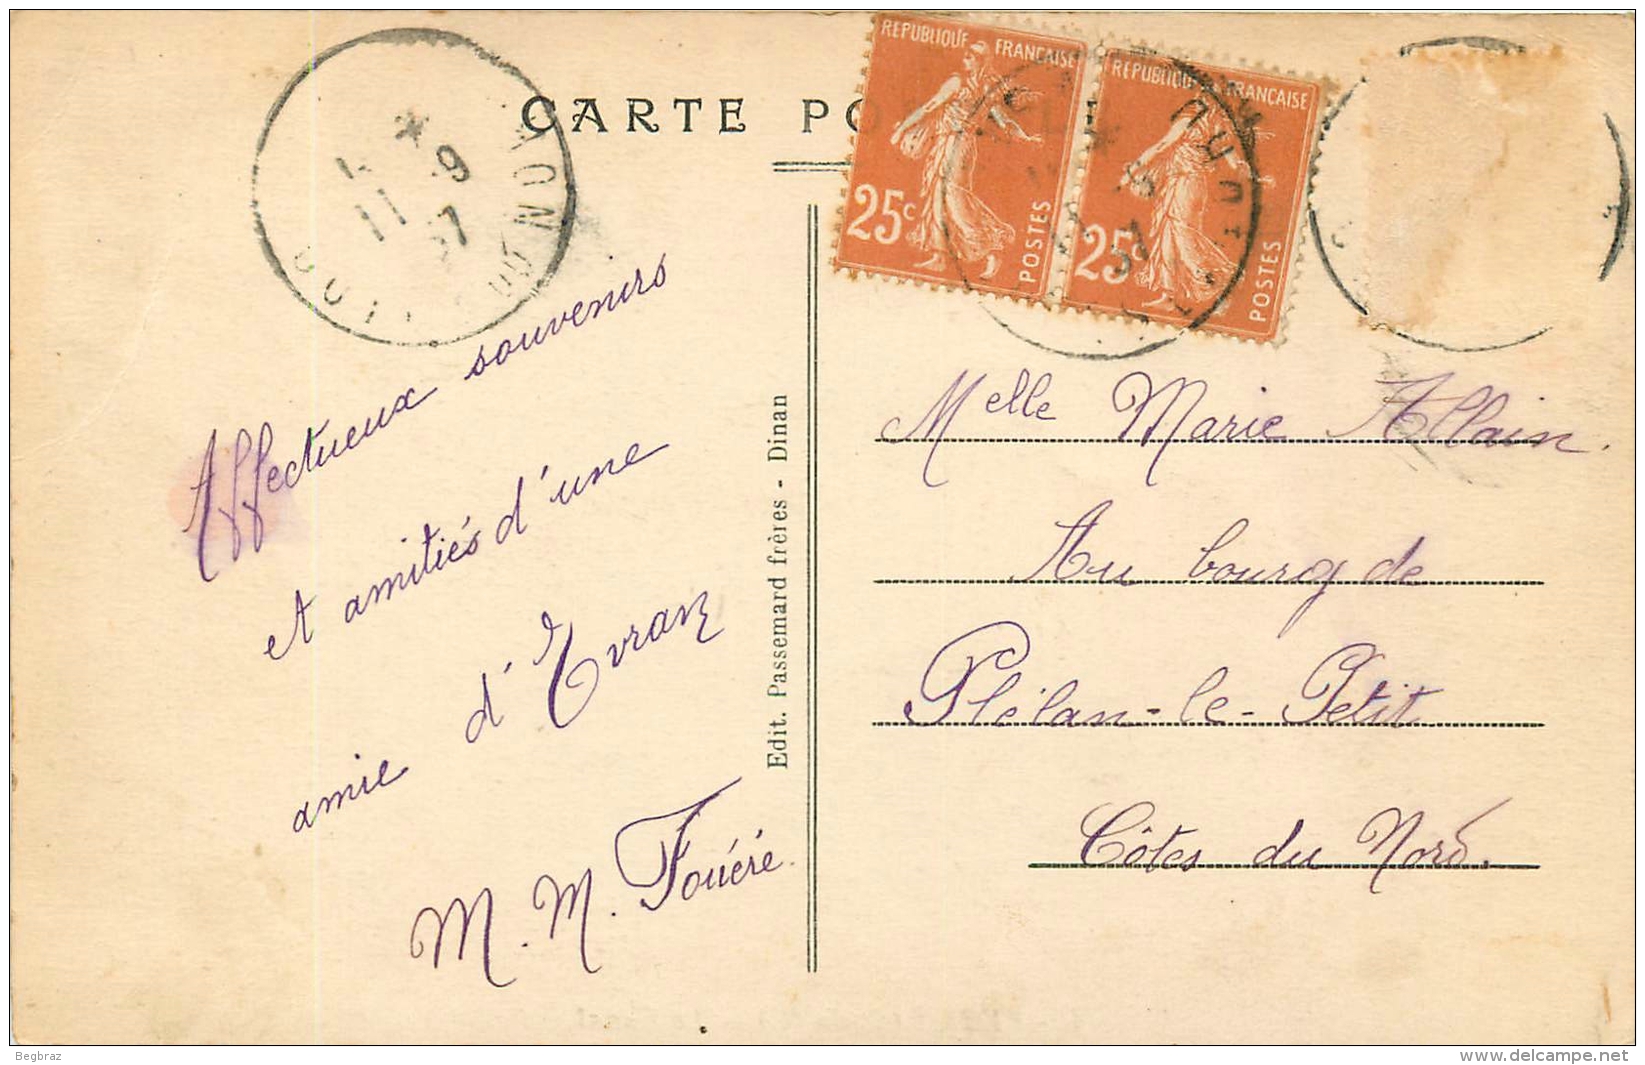 CARTE PO
REPUBLIQUE FRANÇAISE
25c
POSTES
REPUBLIQUE FRANÇAISE
25c
POSTES
11 37
Affectueux souvenirs
et amitiés d'une
amie d'Evran
M. M. Fouéré.
Edit. Passemard frères - Dinan
Melle Marie Allain.
Au bourg de
Plélan-le-Petit
Côtes du Nord.
Begbraz
www.delcampe.net